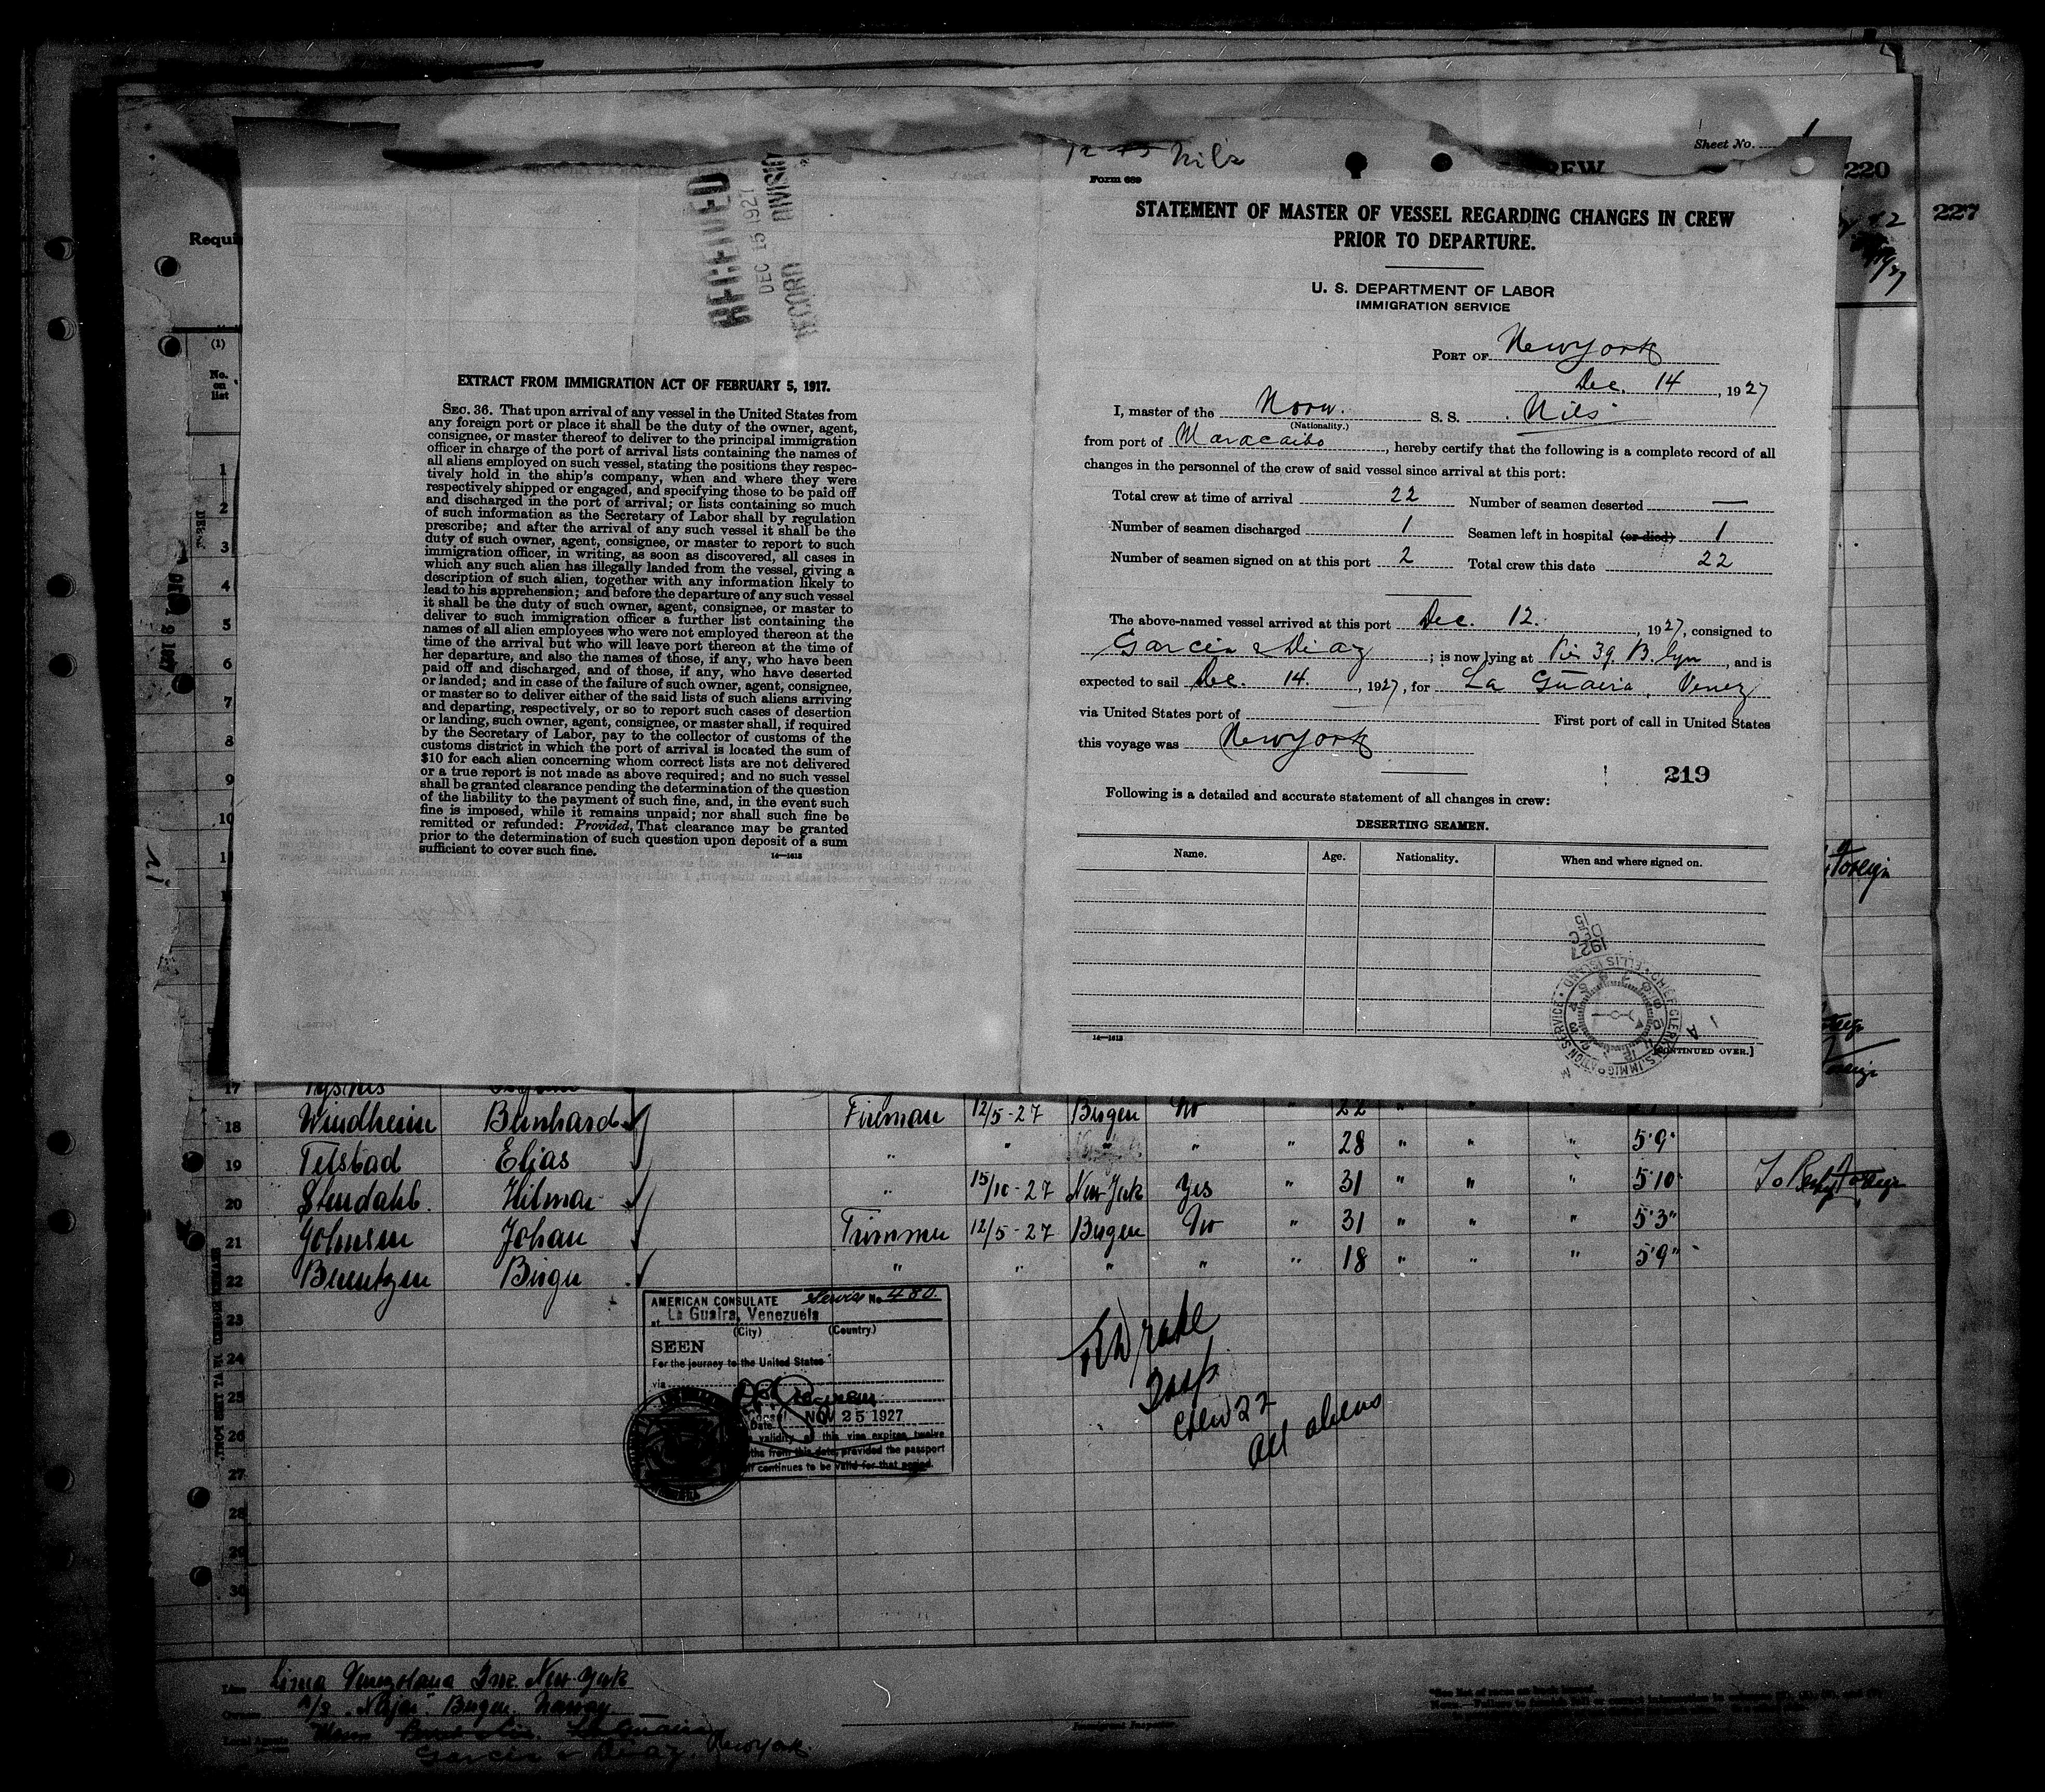 12-15 Nils
Sheet No. 1
220
227
Requi
RECEIVED
DEC 15 1927
RECORD DIVISION
EXTRACT FROM IMMIGRATION ACT OF FEBRUARY 5, 1917.
SEC. 36. That upon arrival of any vessel in the United States from
any foreign port or place it shall be the duty of the owner, agent,
consignee, or master thereof to deliver to the principal immigration
officer in charge of the port of arrival lists containing the names of
all aliens employed on such vessel, stating the positions they respec-
tively hold in the ship's company, when and where they were
respectively shipped or engaged, and specifying those to be paid off
and discharged in the port of arrival; or lists containing so much
of such information as the Secretary of Labor shall by regulation
prescribe; and after the arrival of any such vessel it shall be the
duty of such owner, agent, consignee, or master to report to such
immigration officer, in writing, as soon as discovered, all cases in
which any such alien has illegally landed from the vessel, giving a
description of such alien, together with any information likely to
lead to his apprehension; and before the departure of any such vessel
it shall be the duty of such owner, agent, consignee, or master to
deliver to such immigration officer a further list containing the
names of all alien employees who were not employed thereon at the
time of the arrival but who will leave port thereon at the time of
her departure, and also the names of those, if any, who have been
paid off and discharged, and of those, if any, who have deserted
or landed; and in case of the failure of such owner, agent, consignee,
or master so to deliver either of the said lists of such aliens arriving
and departing, respectively, or so to report such cases of desertion
or landing, such owner, agent, consignee, or master shall, if required
by the Secretary of Labor, pay to the collector of customs of the
customs district in which the port of arrival is located the sum of
$10 for each alien concerning whom correct lists are not delivered
or a true report is not made as above required; and no such vessel
shall be granted clearance pending the determination of the question
of the liability to the payment of such fine, and, in the event such
fine is imposed, while it remains unpaid; nor shall such fine be
remitted or refunded: Provided, That clearance may be granted
prior to the determination of such question upon deposit of a sum
sufficient to cover such fine.
14—1613
Form 689
STATEMENT OF MASTER OF VESSEL REGARDING CHANGES IN CREW
PRIOR TO DEPARTURE.
U. S. DEPARTMENT OF LABOR
IMMIGRATION SERVICE
PORT OF New York
Dec. 14, 1927
I, master of the Norw. S. S. Nils
(Nationality.)
from port of Maracaibo, hereby certify that the following is a complete record of all
changes in the personnel of the crew of said vessel since arrival at this port:
Total crew at time of arrival 22 Number of seamen deserted —
Number of seamen discharged 1 Seamen left in hospital (or died) 1
Number of seamen signed on at this port 2 Total crew this date 22
The above-named vessel arrived at this port Dec. 12., 1927, consigned to
Garcia & Diaz; is now lying at Pier 39 B.lyn, and is
expected to sail Dec. 14., 1927, for La Guaira, Venez
via United States port of First port of call in United States
this voyage was New York
219
Following is a detailed and accurate statement of all changes in crew:
DESERTING SEAMEN.
Name. Age. Nationality. When and where signed on.
1927
DEC
15
CHIEF CLERK U.S. IMMIGRATION SERVICE ELLIS ISLAND
14—1613
[CONTINUED OVER.]
(1)
No.
on
list
1
2
3
4
5
6
7
8
9
10
11
17
18 Windheim Bernhard Fireman 12/5-27 Bergen No " 22 " "
19 Telstad Elias " " " " 28 " " " 5'9"
20 Stendahl. Hilmar " 15/10-27 New York Yes " 31 " " " 5'10"
21 Johnsen Johan Trimmer 12/5-27 Bergen No " 31 " " " 5'3"
22 Berentzen Birger " " " " " 18 " " " 5'9"
23
24
25
26
27
28
29
30
AMERICAN CONSULATE Service No 480
at La Guaira, Venezuela
(City) (Country)
SEEN
For the journey to the United States
via
Date NOV 25 1927
validity of this visa expires twelve
months from this date, provided the passport
continues to be valid for that period.
Crew 22
All aliens
Line Linea Venezolana Inc. New York
Bergen, Norway
Garcia & Diaz, New York
Immigrant Inspector.